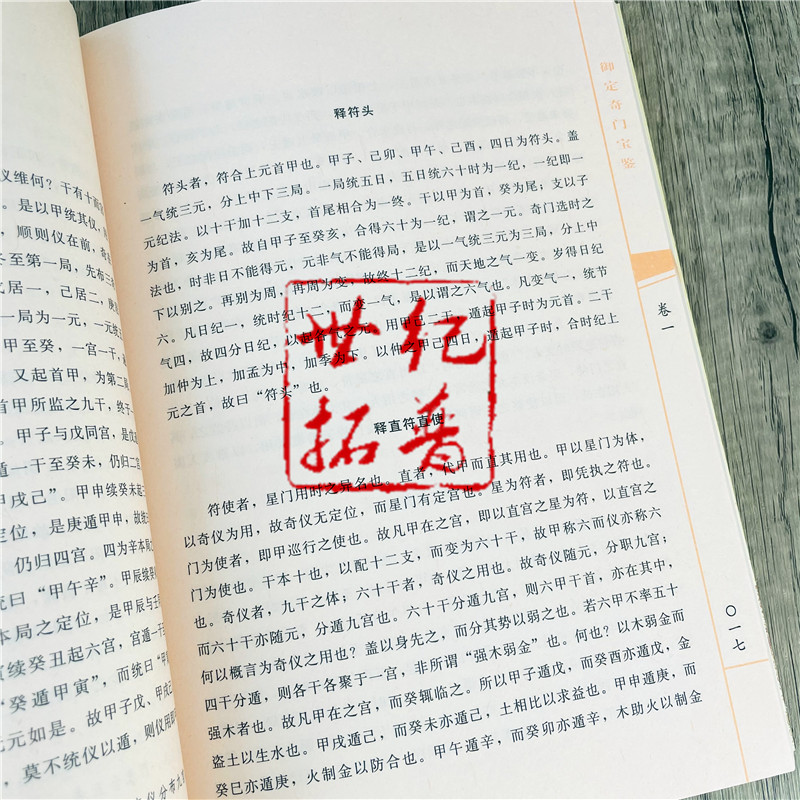 仪维何？干有十而
。是以甲统其仪，
，顺则仪在前，奇
冬至第一局，先布三
北居一，己居二，庚
一局为一元，一元统
甲至癸，一宫一干，
又起首甲，为第二
首甲所监之九干，终于
。甲子与戊同宫，是戊
遁一干至癸未，仍归二宫
甲戌己”。甲申续癸未起三
定位，是庚遁甲申，故统
仍归四宫。四为辛本局
统曰“甲午辛”。甲辰续癸
本局之定位，是甲辰与壬
寅续癸丑起六宫，宫遁一干
“癸遁甲寅”，而统曰“甲
元元如是。故甲子戊、甲戌己
，莫不统仪以遁，则仪用即
仪分布九
释符头
符头者，符合上元首甲也。甲子、己卯、甲午、己酉，四日为符头。盖
一气统三元，分上中下三局。一局统五日，五日统六十时为一纪，一纪即一
元纪法。以十干加十二支，首尾相合为一终。干以甲为首，癸为尾；支以子
为首，亥为尾。故自甲子至癸亥，合得六十为一纪，谓之一元。奇门选时之
法也，时非日不能得元，元非气不能得局，是以一气统三元为三局，分上中
下以别之。再别为周，再周为变，故终十二纪，而天地之气一变。岁得日纪
六。凡日纪一，统时纪十二，而变一气，是以谓之六气也。凡变气一，统节
气四，故四分日纪，以起各气之元。用甲己二干，遁起甲子时为元首。二干
加仲为上，加孟为中，加季为下。以仲之甲己四日，遁起甲子时，合时纪上
元之首，故曰“符头”也。
释直符直使
符使者，星门用时之异名也。直者，代甲而直其用也。甲以星门为体，
以奇仪为用，故奇仪无定位，而星门有定宫也。星为符者，即凭执之符也。
门为使者，即甲巡行之使也。故凡甲在之宫，即以直宫之星为符，以直宫之
门为使也。干本十也，以配十二支，而变为六十干，故甲称六而仪亦称六
也。奇仪者，九干之体；六十干者，奇仪之用也。故奇仪随元，分职九宫；
而六十干亦随元，分遁九宫也。六十干分遁九宫，则六甲干首，亦在其中，
何以概言为奇仪之用也？盖以身先之，而分其势以弱之也。若六甲不率五十
四干分遁，则各干各聚于一宫，非所谓“强木弱金”也。何也？以木弱金而
强木者也。故凡甲在之宫，而癸辄临之。所以甲子遁戊，而癸酉亦遁戊，金
盗土以生水也。甲戌遁己，而癸未亦遁己，土相比以求益也。甲申遁庚，而
癸巳亦遁庚，火制金以防合也。甲午遁辛，而癸卯亦遁辛，木助火以制金
御定奇门宝鉴
卷一
〇一七
世纪
拓普